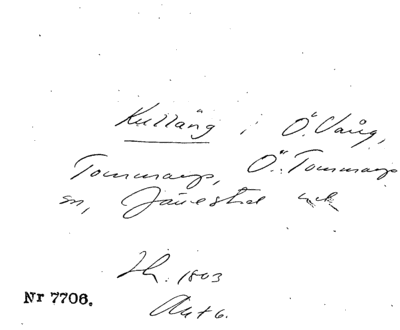 Kulläng i Ö. Vång,
Tommarp, Ö. Tommarps
sn, Järrestad
Sk. 1803
Akt 6.
Nr 7706.